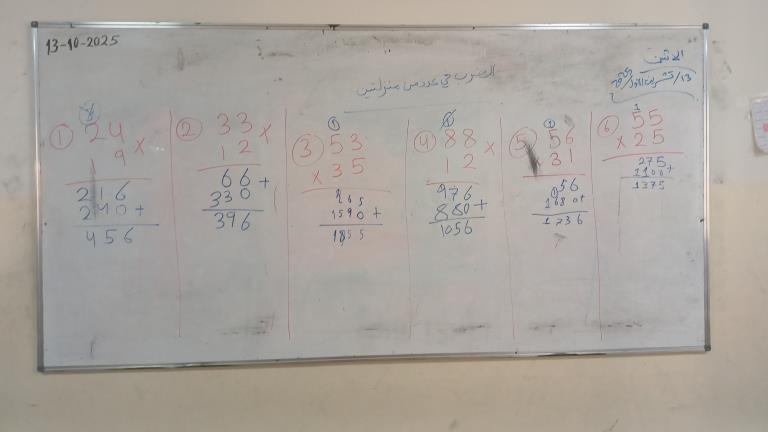 13-10-2025
الضرب في عدد من منزلتين
الاثنين
① 24 ×
19
216
240 +
456
② 33 ×
12
66 +
330
396
③ 53
× 35
265
1590 +
1855
④ 88 ×
12
976
880 +
1056
⑤ 56
31
56
1680 +
1736
⑥ 1
55
× 25
275 +
1100
1375